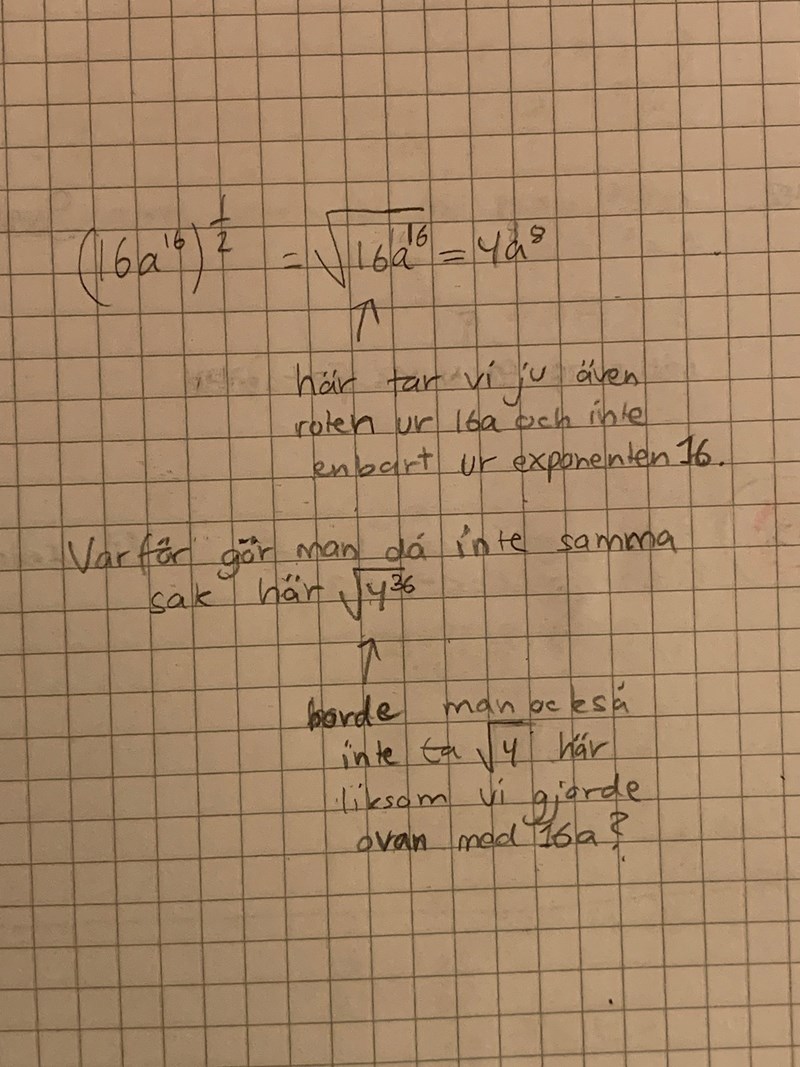 (16a¹⁶)^½ = √16a¹⁶ = 4a⁸
↑
här tar vi ju även
roten ur 16a och inte
enbart ur exponenten 16.
Varför gör man då inte samma
sak här √4³⁶
↑
borde man också
inte ta √4 här
liksom vi gjorde
ovan med 16a?